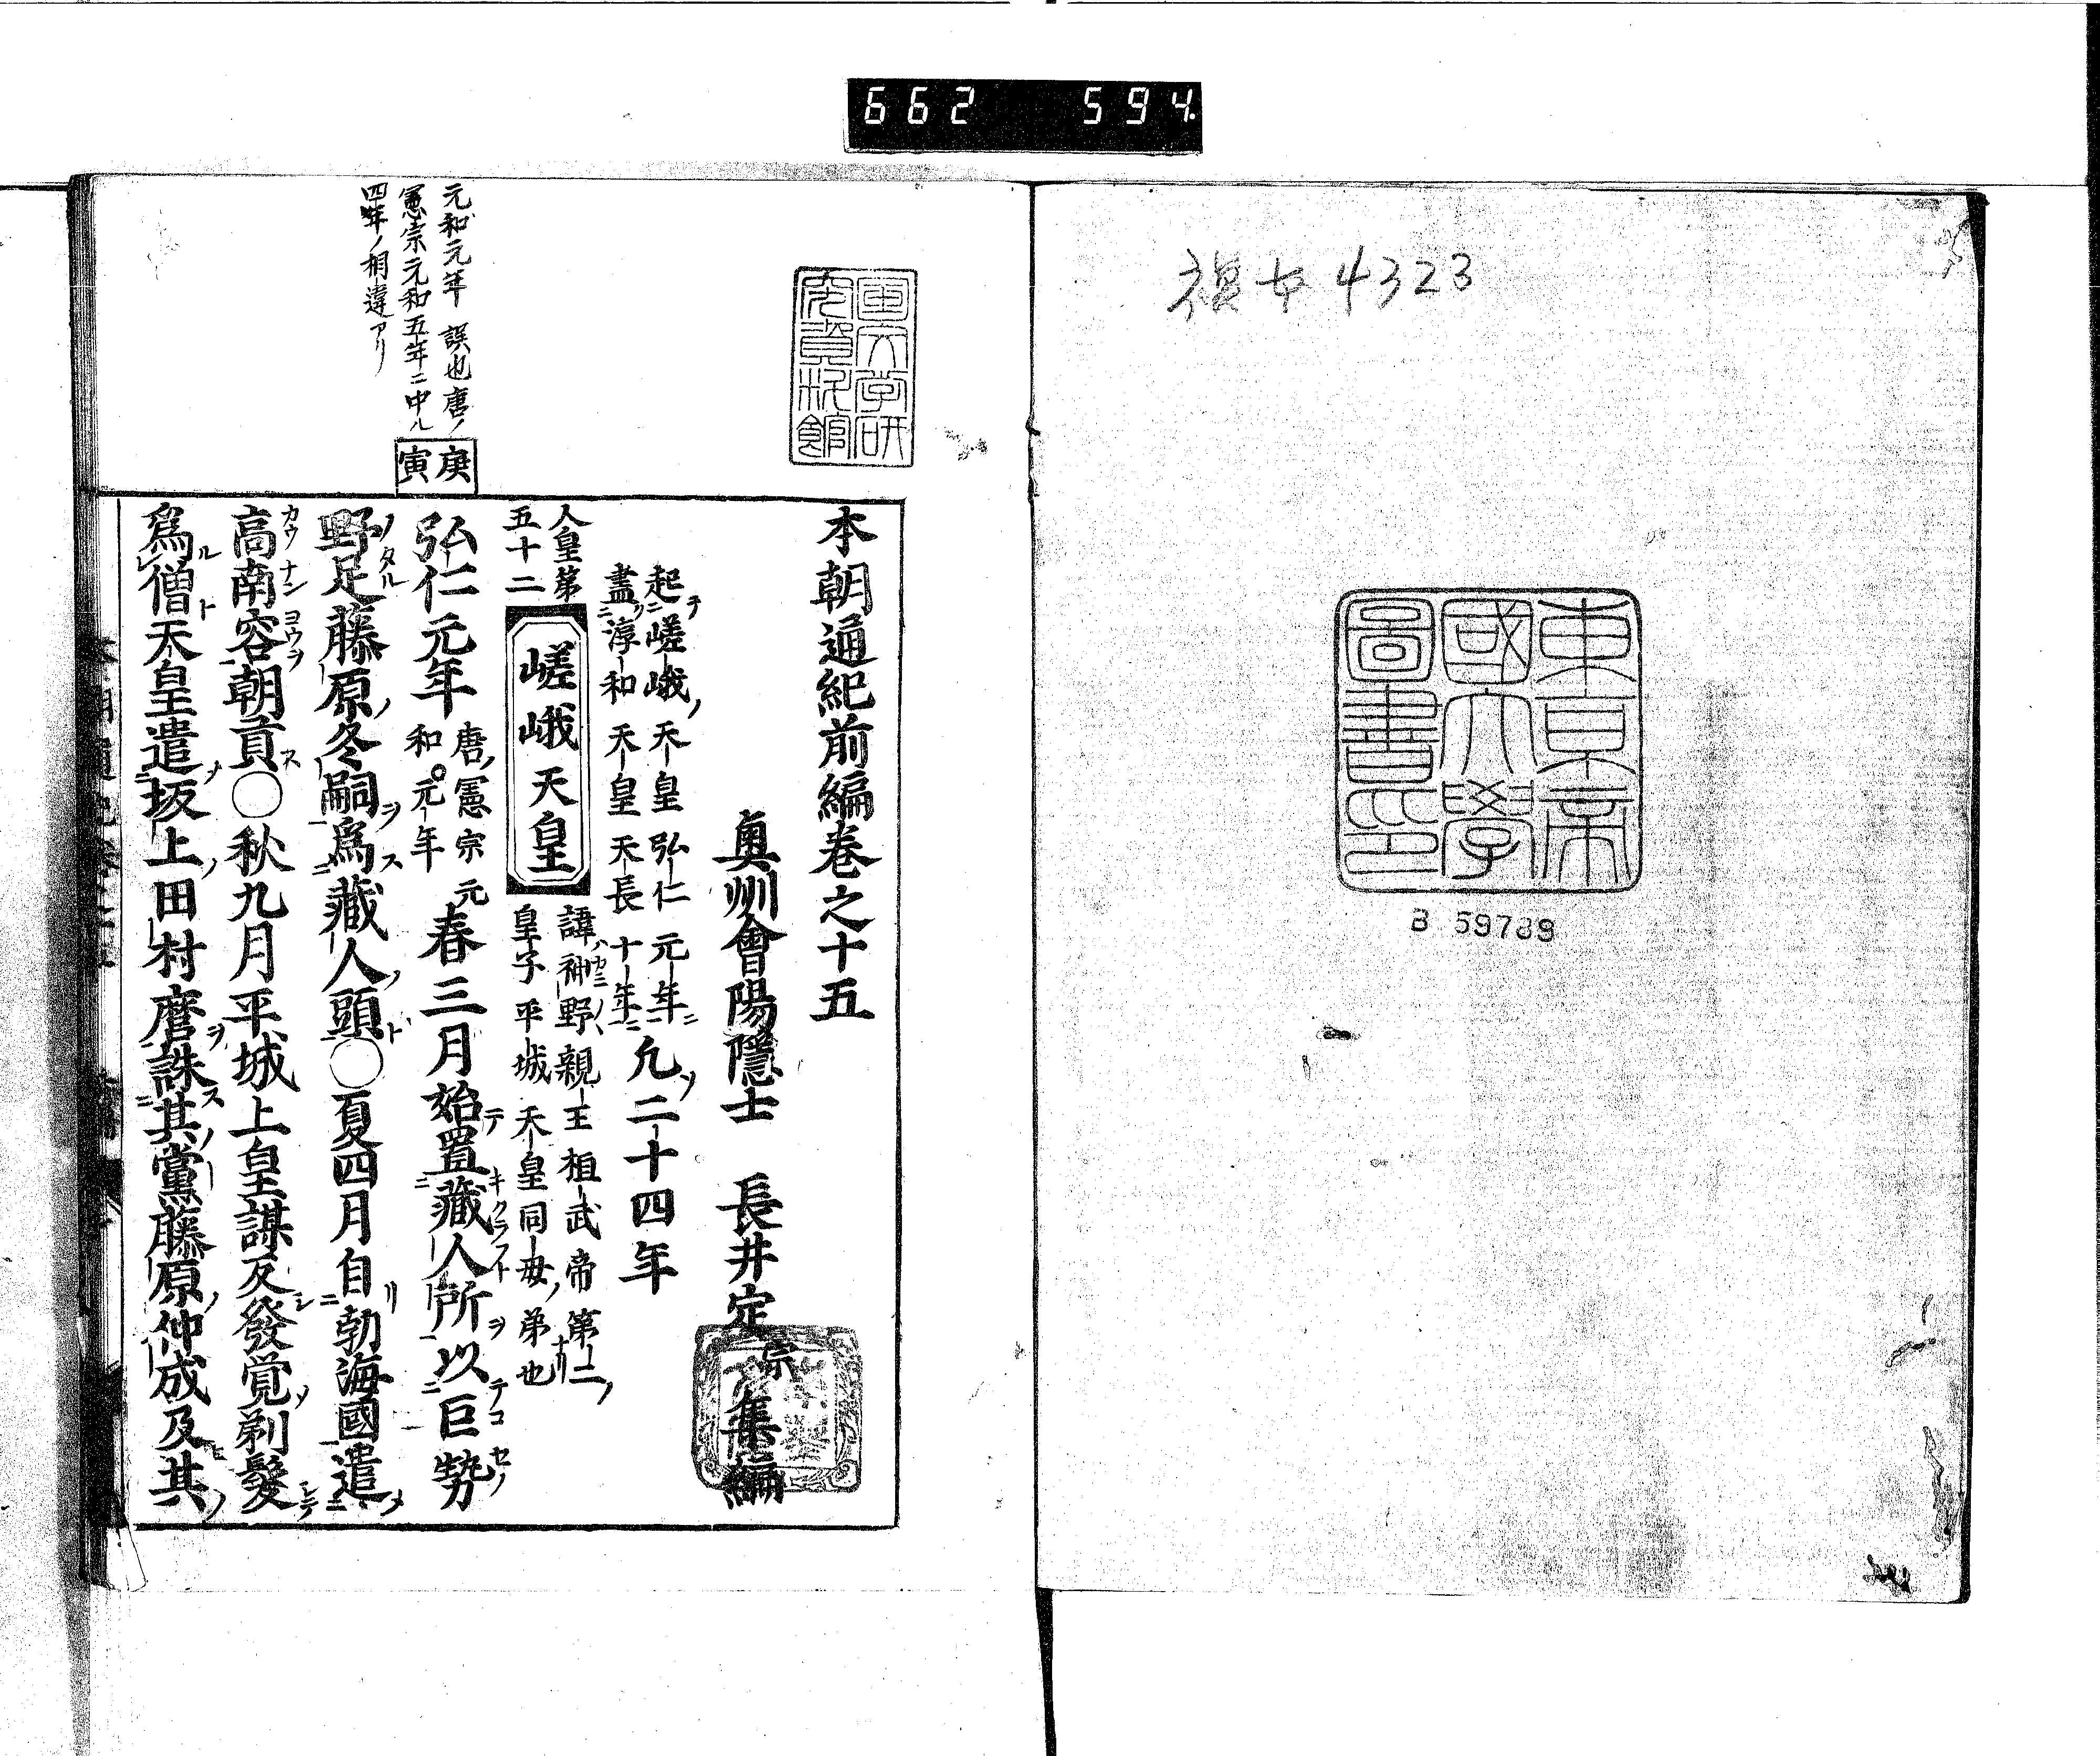 662 594
複女4323
東京帝
國大學
圖書印
B 59789
国文学研
究資料館
元和元年 誤也唐ノ
憲宗元和五年ニ中ル
四年ノ相違アリ
庚寅
本朝通紀前編巻之十五
奥州會陽隱士 長井定宗集編
起嵯峨天皇弘仁元年
盡淳和天皇天長十年
凡二十四年
人皇第
五十二
嵯峨天皇
諱神野親王桓武帝第二
皇子平城天皇同母弟也
弘仁元年
唐憲宗元
和元年
春三月始置藏人所以巨勢
野足藤原冬嗣爲藏人頭○夏四月自勃海國遣
高南容朝貢○秋九月平城上皇謀反發覚剃髮
爲僧天皇遣坂上田村麿誅其黨藤原仲成及其